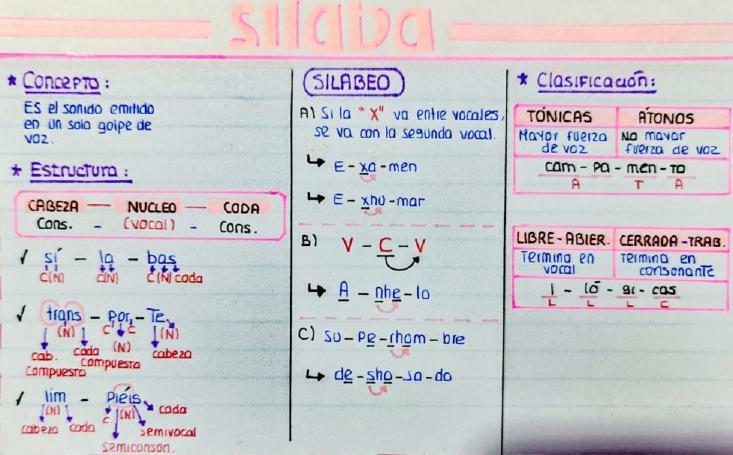 silaba
* Concepto:
Es el sonido emitido
en un solo golpe de
voz.
* Estructura:
CABEZA — NUCLEO — CODA
Cons. - (vocal) - Cons.
✓ sí - la - bas
C(N) C(N) C(N) coda
✓ trans - por - Te
(N) C C (N)
cab. compuesta coda compuesta (N) cabeza
✓ lim - Piéis
(N) C. (N) coda
cabeza coda semivocal
semiconson.
SILABEO
A) Si la "X" va entre vocales,
se va con la segunda vocal.
↳ E - xa - men
↳ E - xhu - mar
B) V - C - V
↳ A - nhe - lo
C) Su - Pe - rhom - bre
↳ de - sha - ja - do
* Clasificación:
TÓNICAS ÁTONOS
Mayor fuerza NO mayor
de voz fuerza de voz
cam - Pa - men - To
A T A
LIBRE - ABIER. CERRADA - TRAB.
Termina en Termina en
vocal consonante
I - ló - gi - cas
L L L C